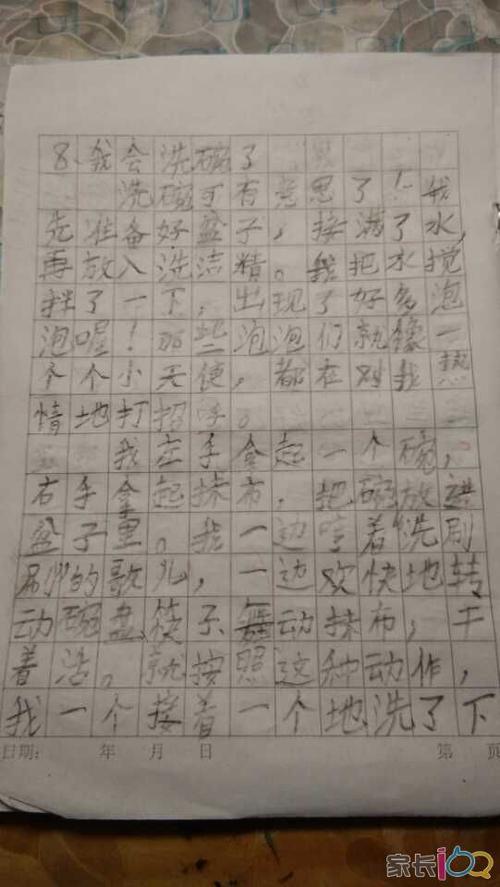 8、我会洗碗了
洗碗可有意思了！我
先准备好盆子，接满了水，
再放入洗洁精。我把水搅
拌了一下，出现了好多泡
泡喔！那些泡泡们就像一
个个小天使，都在对我热
情地打招呼。
我左手拿起一个碗，
右手拿起抹布，把碗放进
盆子里。我一边哼着“洗刷
刷”的歌儿，一边欢快地转
动碗盘、筷子、舞动抹布，干
着活。就按照这种动作，
我一个接着一个地洗了下
日期： 年 月 日 第 页
家长100